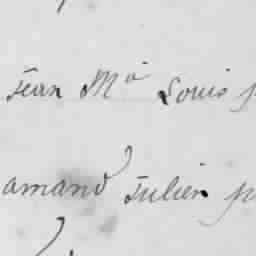 Jean Mia Louis p
amand Julien p